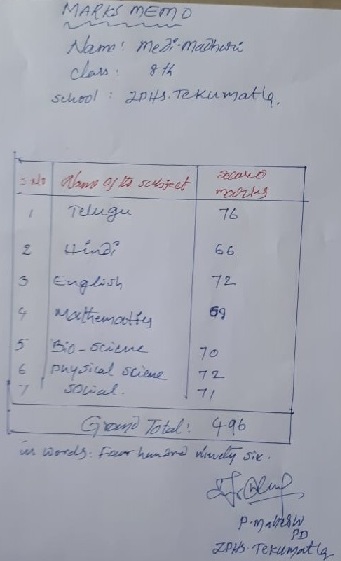 MARKS MEMO
Name: Medi. Madhavi
class: 8th
school: ZPHS. Tekumatla.
S.No Name of the subject marks
1 Telugu 76
2 Hindi 66
3 English 72
4 Mathematics 69
5 Bio-Sciene 70
6 Physical Sciene 72
7 Social. 71
Grand Total: 496
in words: Four hundred ninety six.
P. Mahesh
PD
ZPHS. Tekumatla